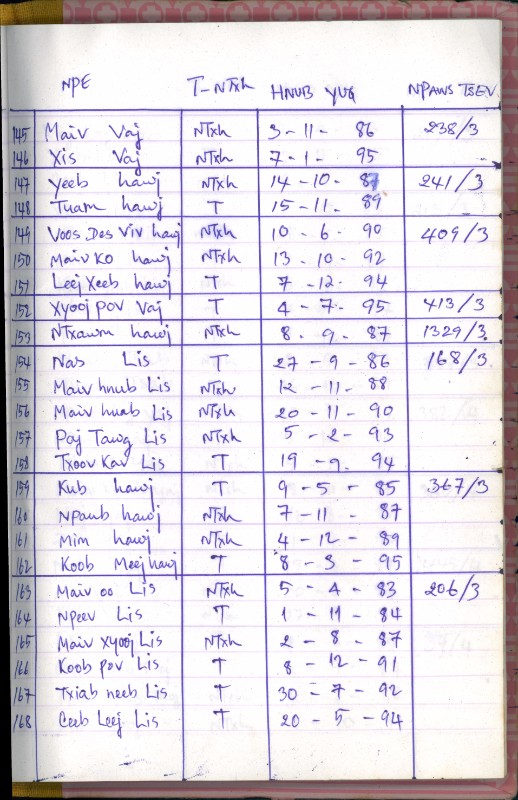 NPE T-NTxh HNUB YUG NPAWS TSEV
145 Maiv Vaj NTxh 3-11-86 238/3
146 Xis Vaj NTxh 7-1-95
147 Yeeb hawj NTxh 14-10-87 241/3
148 Tuam hawj T 15-11-89
149 Voos Des Viv hawj NTxh 10-6-90 409/3
150 Maiv Ko hawj NTxh 13-10-92
151 Leej Xeeb hawj T 7-12-94
152 Xyooj pov Vaj T 4-7-95 413/3
153 NTxawm hawj NTxh 8-9-87 1329/3
154 Nas Lis T 27-9-86 168/3
155 Maiv hnub Lis NTxh 12-11-88
156 Maiv huab Lis NTxh 20-11-90
157 Paj Tawg Lis NTxh 5-2-93
158 Txoov Kav Lis T 19-9-94
159 Kub hawj T 9-5-85 367/3
160 Npaub hawj NTxh 7-11-87
161 Mim hawj NTxh 4-12-89
162 Koob Meej hawj T 8-3-95
163 Maiv oo Lis NTxh 5-4-83 206/3
164 Npeev Lis T 1-11-84
165 Maiv xyooj Lis NTxh 2-8-87
166 Koob pov Lis T 8-12-91
167 Txiab neeb Lis T 30-7-92
168 Ceeb Leej Lis T 20-5-94